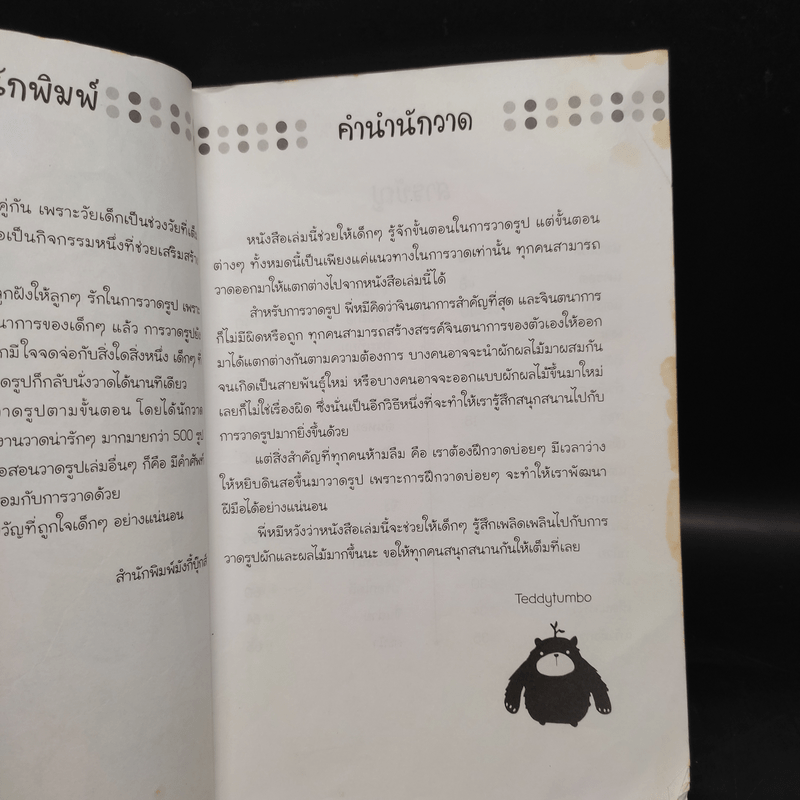 นักพิมพ์
คู่กัน เพราะวัยเด็กเป็นช่วงวัยที่เด็ก
เป็นกิจกรรมหนึ่งที่ช่วยเสริมสร้าง
ให้ลูกๆ รักในการวาดรูป เพราะ
นาการของเด็กๆ แล้ว การวาดรูปยัง
มีใจจดจ่อกับสิ่งใดสิ่งหนึ่ง เด็กๆ
ดรูปก็กลับนั่งวาดได้นานทีเดียว
วาดรูปตามขั้นตอน โดยได้นักวาด
งานวาดน่ารักๆ มากมายกว่า 500 รูป
สอนวาดรูปเล่มอื่นๆ ก็คือ มีคำศัพท์
อมกับการวาดด้วย
วัญที่ถูกใจเด็กๆ อย่างแน่นอน
สำนักพิมพ์มังกี้บุ๊กส์
คำนำนักวาด
หนังสือเล่มนี้ช่วยให้เด็กๆ รู้จักขั้นตอนในการวาดรูป แต่ขั้นตอน
ต่างๆ ทั้งหมดนี้เป็นเพียงแค่แนวทางในการวาดเท่านั้น ทุกคนสามารถ
วาดออกมาให้แตกต่างไปจากหนังสือเล่มนี้ได้
สำหรับการวาดรูป พี่หมีคิดว่าจินตนาการสำคัญที่สุด และจินตนาการ
ก็ไม่มีผิดหรือถูก ทุกคนสามารถสร้างสรรค์จินตนาการของตัวเองให้ออก
มาได้แตกต่างกันตามความต้องการ บางคนอาจจะนำผักผลไม้มาผสมกัน
จนเกิดเป็นสายพันธุ์ใหม่ หรือบางคนอาจจะออกแบบผักผลไม้ขึ้นมาใหม่
เลยก็ไม่ใช่เรื่องผิด ซึ่งนั่นเป็นอีกวิธีหนึ่งที่จะทำให้เรารู้สึกสนุกสนานไปกับ
การวาดรูปมากยิ่งขึ้นด้วย
แต่สิ่งสำคัญที่ทุกคนห้ามลืม คือ เราต้องฝึกวาดบ่อยๆ มีเวลาว่าง
ให้หยิบดินสอขึ้นมาวาดรูป เพราะการฝึกวาดบ่อยๆ จะทำให้เราพัฒนา
ฝีมือได้อย่างแน่นอน
พี่หมีหวังว่าหนังสือเล่มนี้จะช่วยให้เด็กๆ รู้สึกเพลิดเพลินไปกับการ
วาดรูปผักและผลไม้มากขึ้นนะ ขอให้ทุกคนสนุกสนานกันให้เต็มที่เลย
Teddytumbo